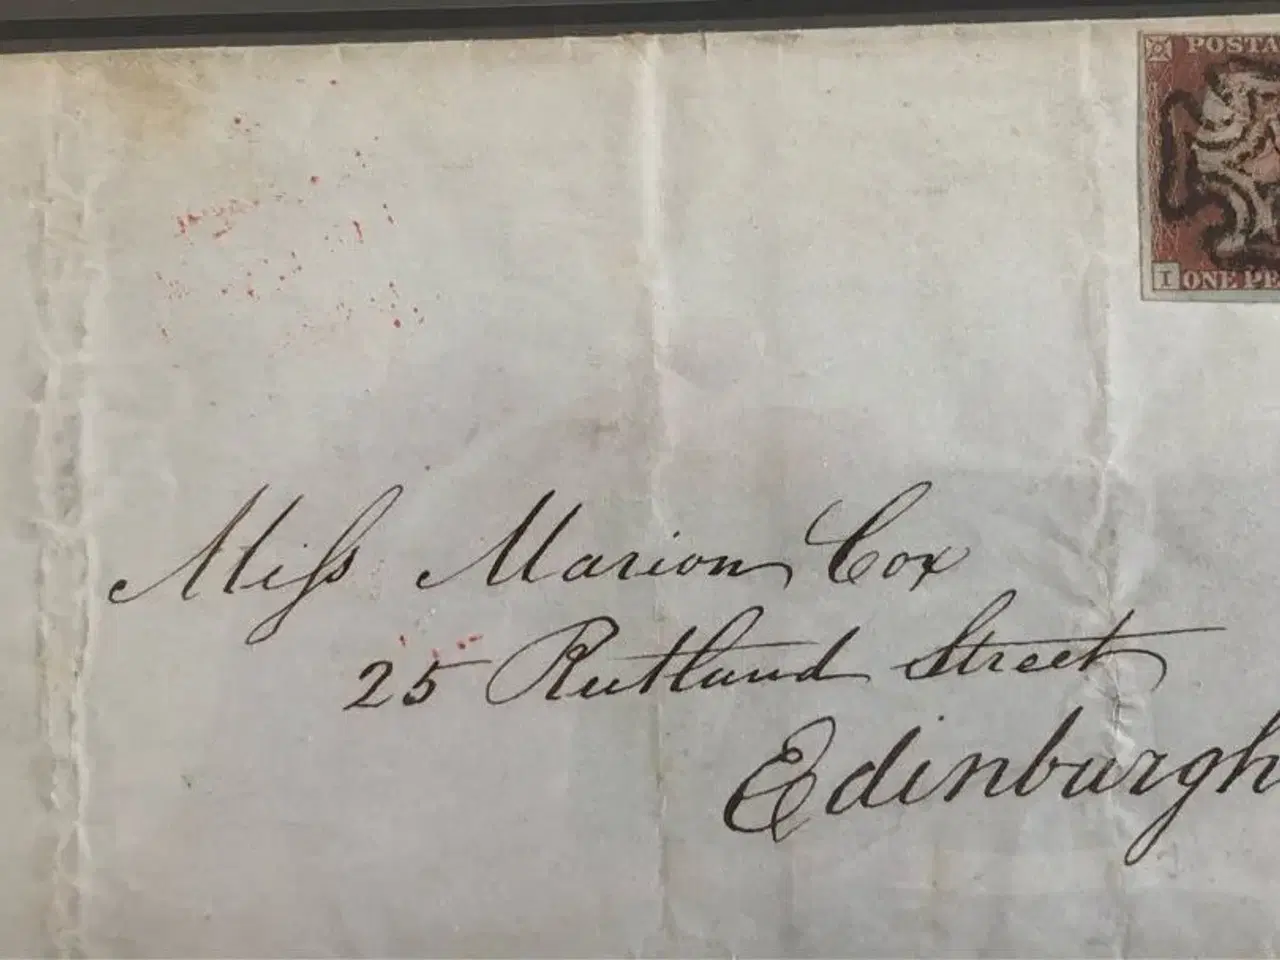 POSTA
I ONE PE
Miss Marion Cox
25 Rutland Street
Edinburgh